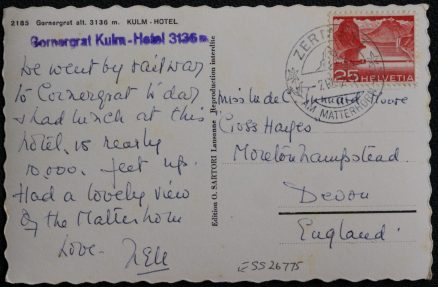 2185 Gornergrat alt. 3136 m. KULM-HOTEL
Gornergrat Kulm-Hotel 3136 m
We went by railway
to Gornergrat to day
& had lunch at this
hotel, is nearly
10,000 feet up.
Had a lovely view
of the Matterhorn
Love.
Edition O. SARTORI Lausanne Reproduction interdite
ZERMATT
AM MATTERHORN
25 HELVETIA
Miss M de C
Cross Hayes
Moretonhampstead.
Devon
England.
ESS26775